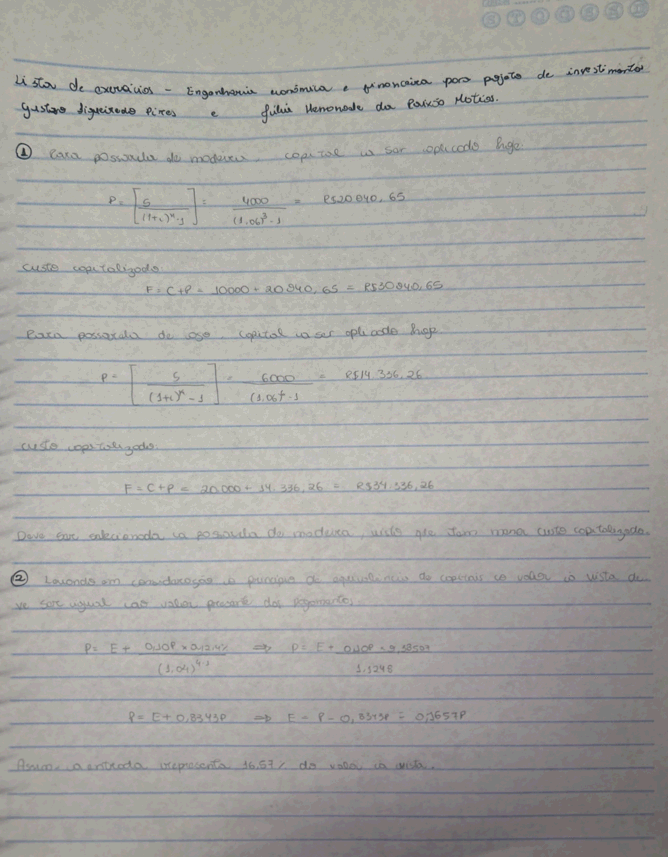 Lista de exercícios - Engenharia econômica e financeira para projeto de investimentos
Gustavo Siqueiredo Pires e Júlia da Paixão Matias.
① Para passarela de madeira, capital a ser aplicado hoje
P = [S / (1+i)ⁿ-1] = 4000 / (1.06)³-1 = R$20.940,65
custo capitalizado
F = C+P = 10000 + 20.940,65 = R$30.940,65
Para passarela de aço, capital a ser aplicado hoje
P = [S / (1+i)ⁿ - 1] = 6000 / (1.06) - 1 = R$14.336,26
custo capitalizado
F = C+P = 20.000 + 14.336,26 = R$34.336,26
Deve ser selecionada a passarela de madeira, visto que tem menor custo capitalizado.
② Levando em consideração o princípio de equivalência de capitais o valor à vista de
ve ser igual ao valor presente dos pagamentos,
P = E + 0,10P × / (1.04) ⇒ P = E + 0,10P × / 1.1248
P = E + 0,8343P ⇒ E = P - 0,8343P = 0,1657P
Assim, a entrada representa 16.57% do valor à vista.